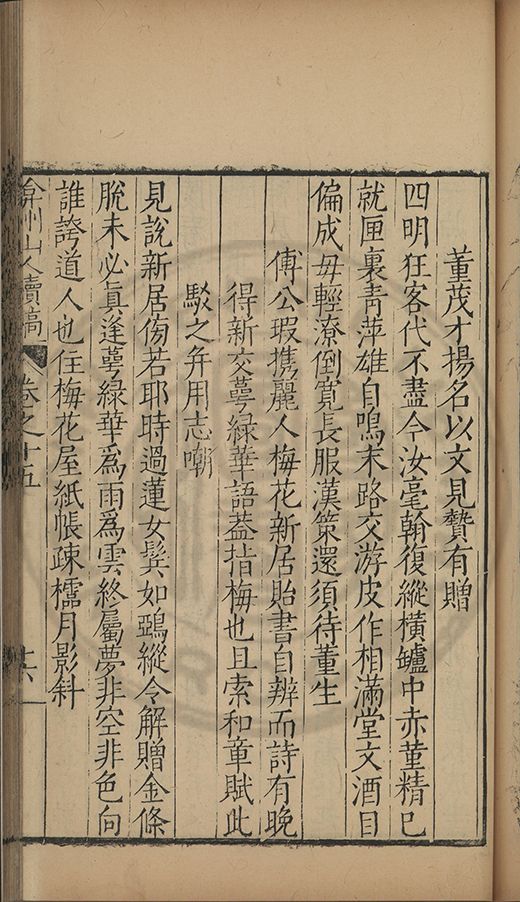 董茂才揚名以文見贄有贈
四明狂客代不盡今汝毫翰復縱橫鑪中赤菫精已
就匣裏青萍雄自鳴末路交游皮作相滿堂文酒目
偏成毋輕潦倒寬長服漢策還須待董生
傅公瑕携麗人梅花新居貽書自辨而詩有晚
得新交萼綠華語蓋指梅也且索和章賦此
駁之弁用志嘲
見說新居傍若耶時過蓮女鬂如鵶縱令解贈金條
脫未必眞逢萼綠華爲雨爲雲終屬夢非空非色向
誰誇道人也住梅花屋紙帳疎櫺月影斜
弇州山人續稿 卷之十五 十六